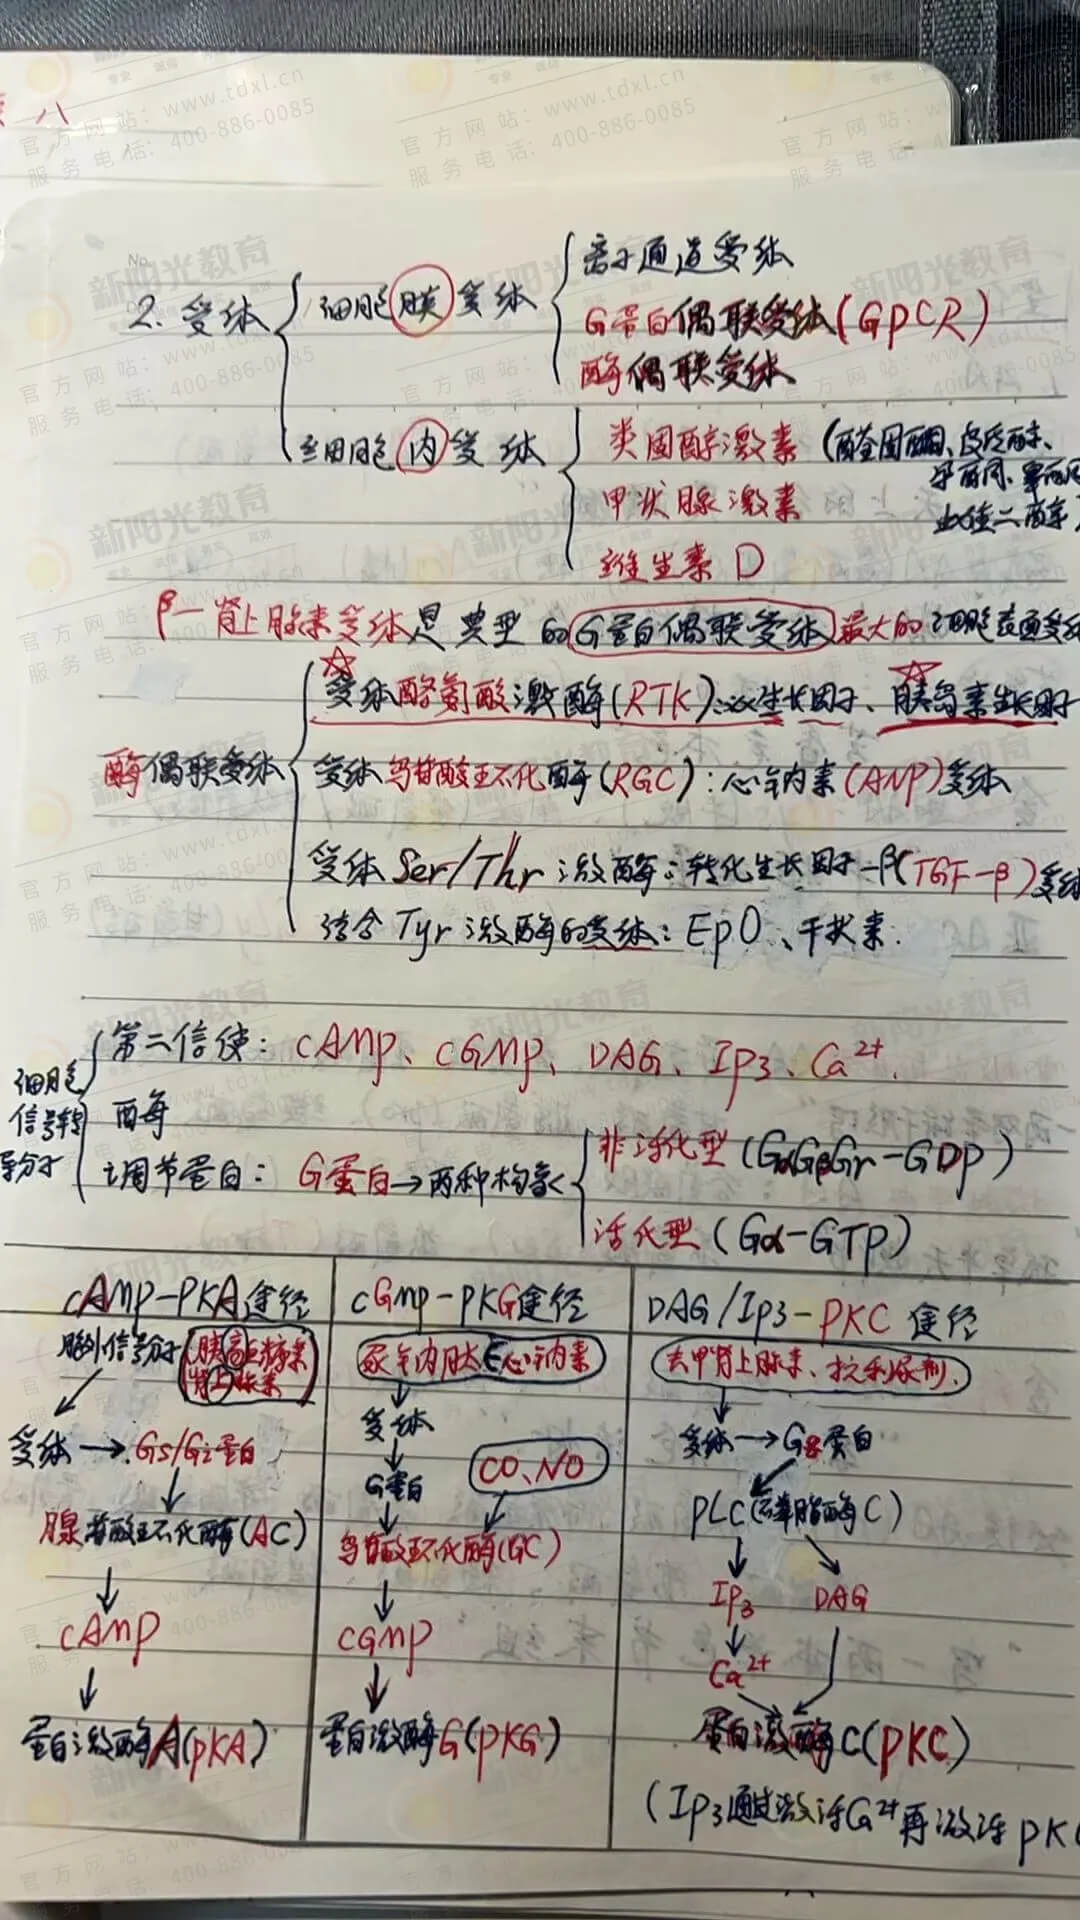 八
No.
2. 受体
细胞膜受体
离子通道受体
G蛋白偶联受体(GPCR)
酶偶联受体
细胞内受体
类固醇激素(醛固酮、皮质醇、
孕酮、睾酮
雌二醇
甲状腺激素
维生素D
β-肾上腺素受体是典型的G蛋白偶联受体 最大的细胞表面受体
酶偶联受体
受体酪氨酸激酶(RTK):生长因子、胰岛素生长因子
受体鸟苷酸环化酶(RGC):心钠素(ANP)受体
受体Ser/Thr激酶:转化生长因子-β(TGF-β)受体
结合Tyr激酶的受体:EPO、干扰素.
细胞
信号转
导分子
第二信使:cAMP、cGMP、DAG、IP3、Ca²⁺.
酶
调节蛋白:G蛋白→两种构象
非活化型(GαGβGγ-GDP)
活化型(Gα-GTP)
cAMP-PKA途径
胞外信号分子(胰高血糖素
肾上腺素
受体→Gs/Gi蛋白
腺苷酸环化酶(AC)
cAMP
蛋白激酶A(PKA)
cGMP-PKG途径
尿钠肽 心钠素
受体
G蛋白
CO、NO
鸟苷酸环化酶(GC)
cGMP
蛋白激酶G(PKG)
DAG/IP3-PKC途径
去甲肾上腺素、抗利尿剂.
受体→G蛋白
PLC(磷脂酶C)
IP3 DAG
Ca²⁺
蛋白激酶C(PKC)
(IP3通过激活Ca²⁺再激活PKC
新阳光教育
官方网站:www.tdxl.cn
服务电话:400-886-0085